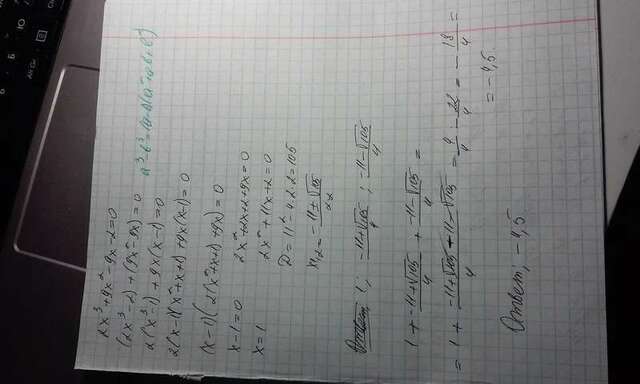 2x³+9x²-9x-2=0
(2x³-2)+(9x²-9x)=0
a³-b³=(a-b)(a²+ab+b²)
2(x³-1)+9x(x-1)=0
2(x-1)(x²+x+1)+9x(x-1)=0
(x-1)(2(x²+x+1)+9x)=0
x-1=0 2x²+2x+2+9x=0
x=1 2x²+11x+2=0
D=11²-4·2·2=105
x₁,₂=(-11±√105)/(2·2)
Ответ: 1; (-11+√105)/4; (-11-√105)/4
1+(-11+√105)/4+(-11-√105)/4=
=1+(-11+√105-11-√105)/4=4/4-22/4=-18/4=
=-4,5.
Ответ: -4,5